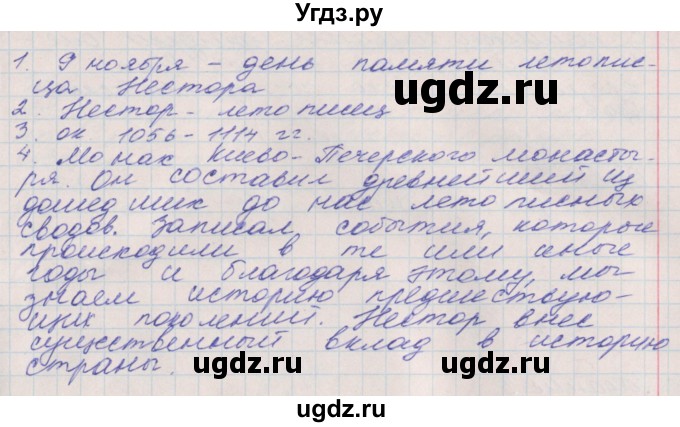 Угдз.ру
1. 9 ноября - день памяти летопис-
ца Нестора
2. Нестор - летописец
3. ок 1056-1114 гг.
4. Монах Киево-Печерского монасты-
ря. Он составил древнейший из
дошедших до нас летописных
сводов. Записал события, которые
происходили в те или иные
годы и благодаря этому, мы
знаем историю предшествую-
щих поколений. Нестор внес
существенный вклад в историю
страны.
ugdz.ru
ugdz.ru
ugdz.ru
ugdz.ru
ugdz.ru
ugdz.ru